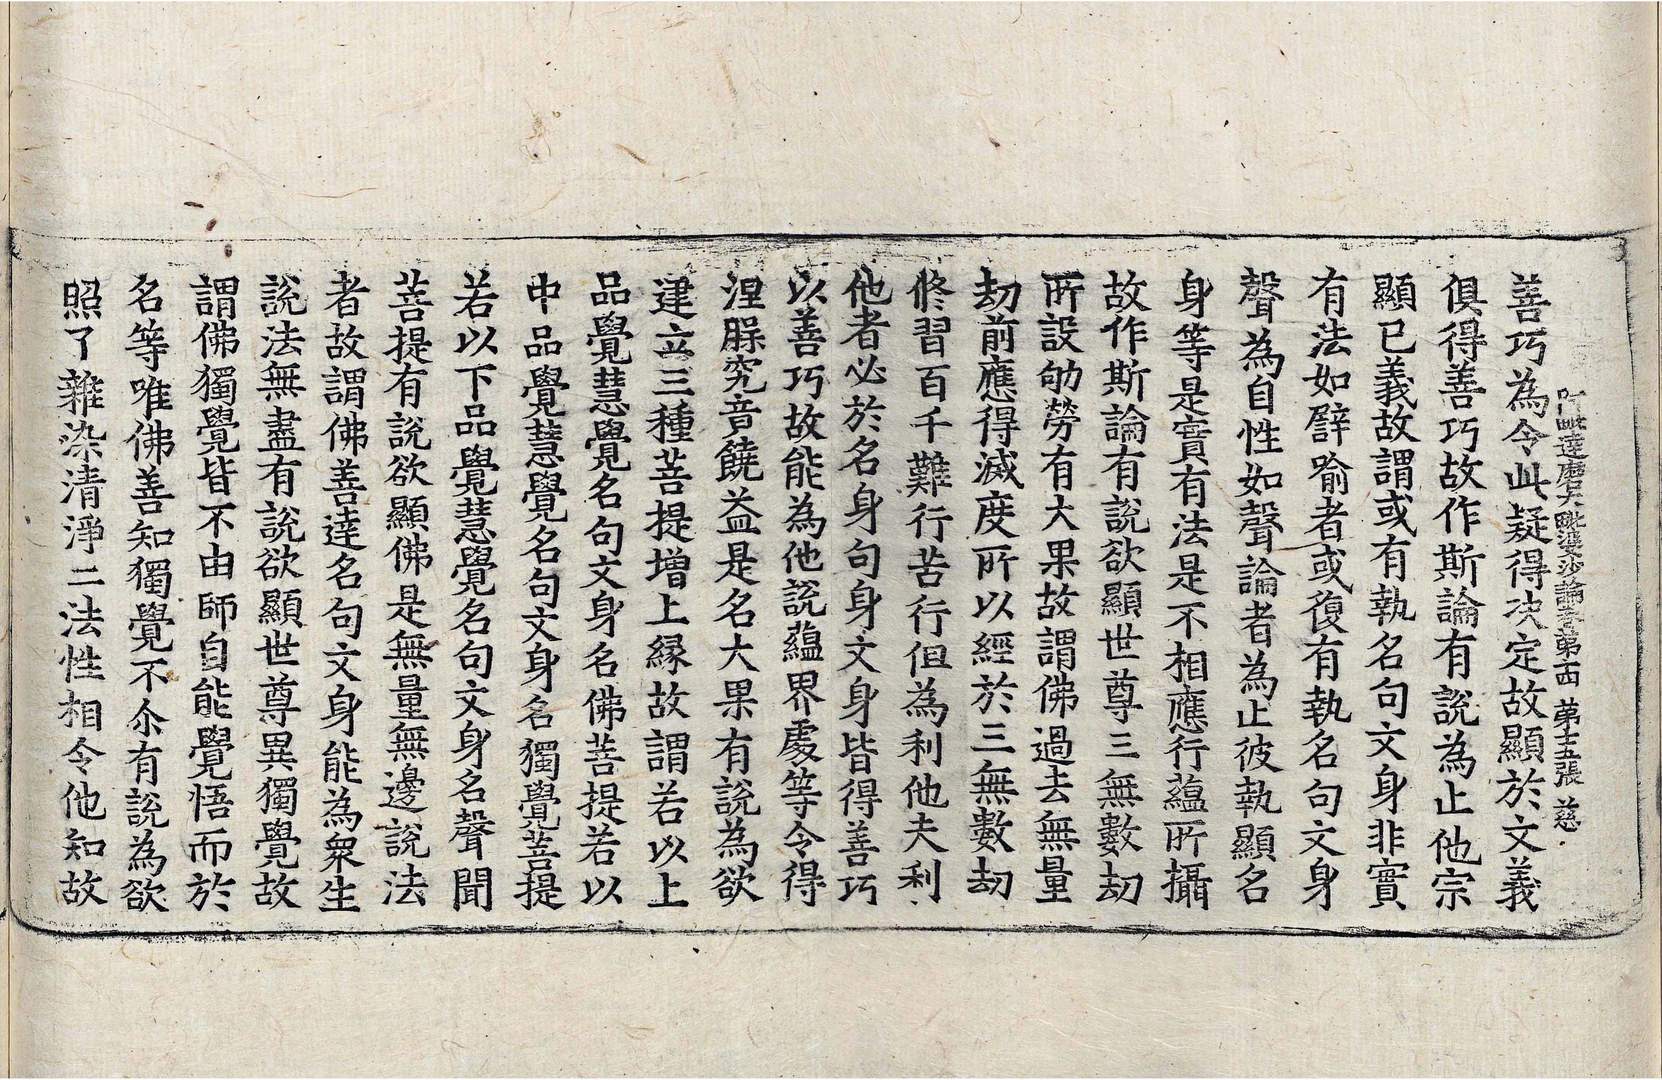 阿毗達磨大毗婆沙論卷第十四　第十五張　慈
善巧為令此疑得决定故顯於文義
俱得善巧故作斯論有說為止他宗
顯已義故謂或有執名句文身非實
有法如譬喻者或復有執名句文身
聲為自性如聲論者為止彼執顯名
身等是實有法是不相應行蘊所攝
故作斯論有說欲顯世尊三無數劫
所設劬勞有大果故謂佛過去無量
劫前應得滅度所以經於三無數劫
修習百千難行苦行但為利他夫利
他者必於名身句身文身皆得善巧
以善巧故能為他說蘊界處等令得
涅槃究竟饒益是名大果有說為欲
建立三種菩提增上緣故謂若以上
品覺慧覺名句文身名佛菩提若以
中品覺慧覺名句文身名獨覺菩提
若以下品覺慧覺名句文身名聲聞
菩提有說欲顯佛是無量無邊說法
者故謂佛善達名句文身能為衆生
說法無盡有說欲顯世尊異獨覺故
謂佛獨覺皆不由師自能覺悟而於
名等唯佛善知獨覺不尒有說為欲
照了雜染清淨二法性相令他知故